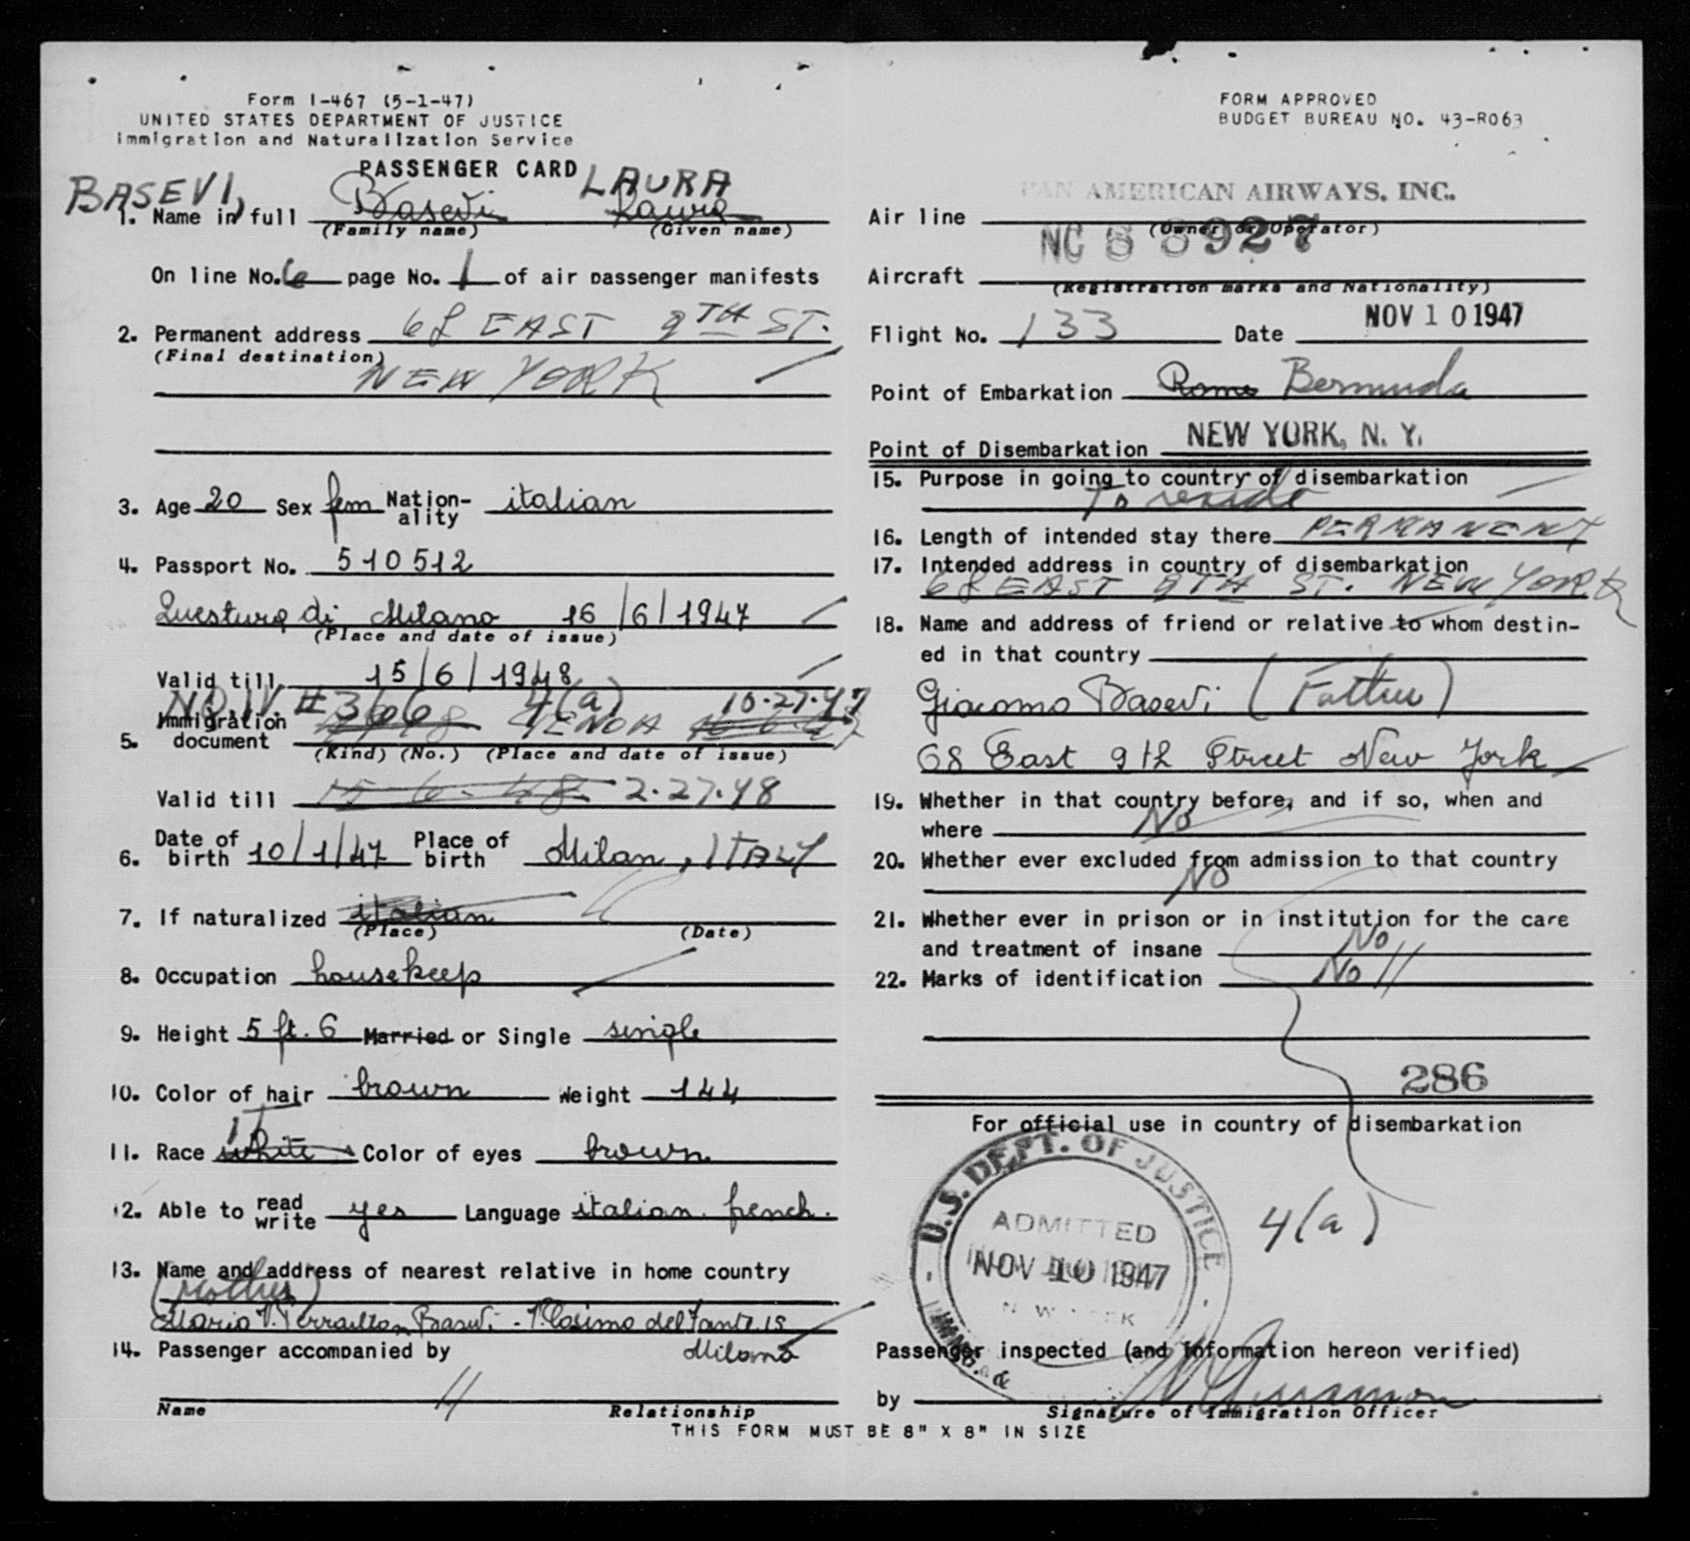 Form I-467 (5-1-47)
UNITED STATES DEPARTMENT OF JUSTICE
Immigration and Naturalization Service
PASSENGER CARD
BASEVI, LAURA
1. Name in full Basevi Laura
(Family name) (Given name)
On line No. 6 page No. 1 of air passenger manifests
2. Permanent address 68 EAST 9TH ST.
(Final destination)
NEW YORK
3. Age 20 Sex fem Nation-ality italian
4. Passport No. 510512
Questura di Milano 16/6/1947
(Place and date of issue)
Valid till 15/6/1948
NQIV #366 4(a) 10-27-47
5. Immigration document GENOA
(Kind) (No.) (Place and date of issue)
Valid till 15-6-48 2-27-48
6. Date of birth 10/1/47 Place of birth Milan, ITALY
7. If naturalized italian
(Place) (Date)
8. Occupation housekeep
9. Height 5 ft. 6 Married or Single single
10. Color of hair brown Weight 144
11. Race white IT Color of eyes brown
12. Able to read write yes Language italian. french.
13. Name and address of nearest relative in home country
(Mother)
Maria V. Basevi - V. Cosimo del Fante 15
Milano
14. Passenger accompanied by
Name Relationship
THIS FORM MUST BE 8" X 8" IN SIZE
FORM APPROVED
BUDGET BUREAU NO. 43-R063
Air line PAN AMERICAN AIRWAYS, INC.
(Owner or Operator)
Aircraft NC 88927
(Registration marks and Nationality)
Flight No. 133 Date NOV 10 1947
Point of Embarkation Rome Bermuda
Point of Disembarkation NEW YORK, N. Y.
15. Purpose in going to country of disembarkation
To reside
16. Length of intended stay there PERMANENT
17. Intended address in country of disembarkation
68 EAST 9TH ST. NEW YORK
18. Name and address of friend or relative to whom destin-
ed in that country
Giacomo Basevi (Father)
68 East 9th Street New York
19. Whether in that country before, and if so, when and
where No
20. Whether ever excluded from admission to that country
No
21. Whether ever in prison or in institution for the care
and treatment of insane No
22. Marks of identification No
286
For official use in country of disembarkation
U.S. DEPT. OF JUSTICE
ADMITTED
NOV 10 1947
4(a)
IMMIG. &
Passenger inspected (and information hereon verified)
by
Signature of Immigration Officer